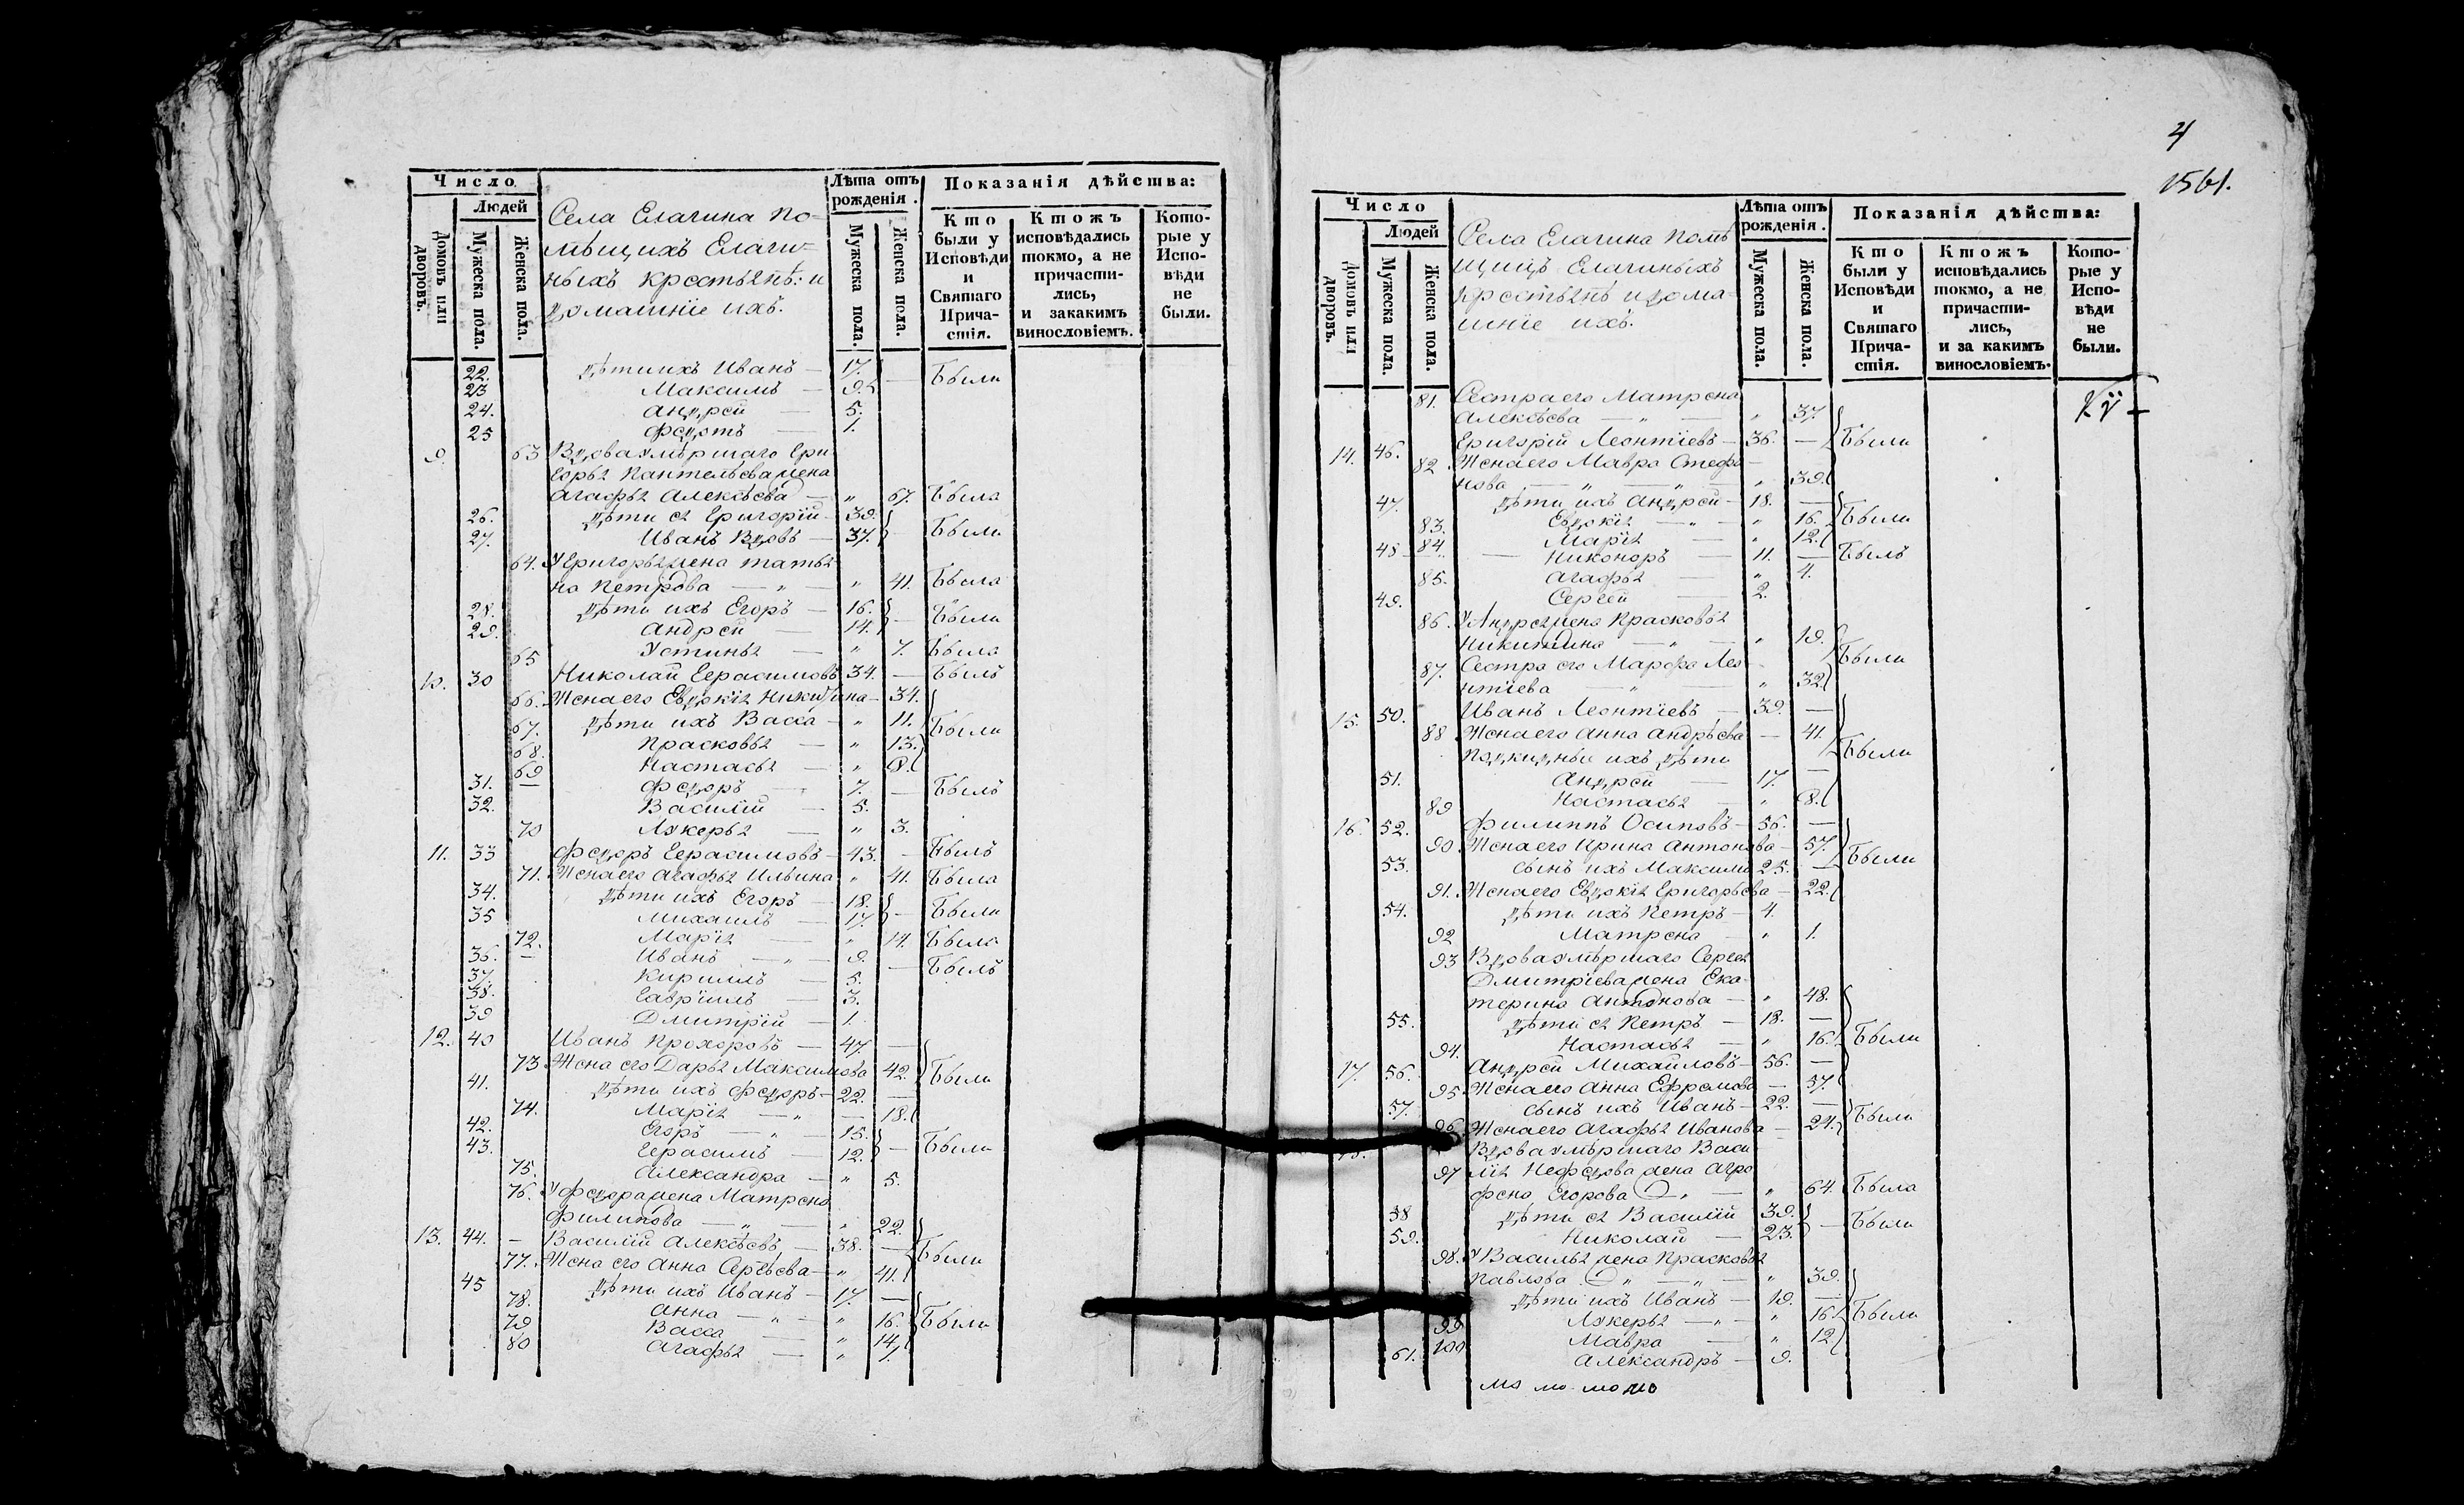 Число
Людей
Домовъ или дворовъ.
Мужеска пола.
Женска пола.
Села Елагина по-
мѣщихъ Елаги-
ныхъ крестьянѣ: и
домашніе ихъ.
Лѣта отъ рожденія.
Мужеска пола.
Женска пола.
Показанія дѣйства:
Кто были у Исповѣди и Святаго Причастія.
Ктожъ исповѣдались токмо, а не причастились, и закакимъ винословіемъ.
Которые у Исповѣди не были.
22. Дѣти ихъ Иванъ — 17. — Были
23 Максимъ — 9.
24. Андрей — 5.
25 Федотъ — 1.
9. 63 Вдова умѣршаго Гри
горья Пантелѣева жена
Агафья Алексѣева — " 67. Была
26. Дѣти ея Григорій — 39. — Были
27. Иванъ Вдовъ — 37.
64. У Григорья жена Татья
на Петрова — " — " 41. Была
28. Дѣти ихъ Егоръ — 16. — Были
29. Андрей — 14.
65 Устинья — " 7. Была
10. 30 Николай Герасимовъ 34. — Былъ
66. Жена его Евдокія Никитина — 34.
67. Дѣти ихъ Васса — " 11. Были
68. Прасковья — " 13.
69 Настасья — " 8.
31. — Федоръ — 7. — Былъ
32. Василій — 5.
70 Лукерья — " 3.
11. 33 Федоръ Герасимовъ — 43. — Былъ
71. Жена его Агафья Ильина " 41. Была
34. Дѣти ихъ Егоръ — 18. — Были
35 Михаилъ — 17.
72. Марія — " 14. Была
36. — Иванъ — " — 9. — Былъ
37. Кириллъ — 5.
38. Гавріилъ — 3.
39 Дмитрій — 1.
12. 40 Иванъ Прохоровъ — 47. —
73 Жена его Дарья Максимова 42. Были
41. Дѣти ихъ Федоръ — 22. —
74. Марія — " — 18.
42. Егоръ — " — 15. — Были
43. Герасимъ — 12.
75. Александра — " 5.
76. У Федора жена Матрена
Филипова — " — " 22.
13. 44. — Василій Алексѣевъ — 38. — Были
77. Жена его Анна Сергѣева — " 41.
45 Дѣти ихъ Иванъ — 17. —
78. Анна — " — " 16. Были
79 Васса — " 14.
80 Агафья — " 1.
4
1561.
Число
Людей
Домовъ или дворовъ.
Мужеска пола.
Женска пола.
Села Елагина помѣ
щицъ Елагиныхъ
крестьянѣ и дома-
шніе ихъ.
Лѣта отъ рожденія.
Мужеска пола.
Женска пола.
Показанія дѣйства:
Кто были у Исповѣди и Святаго Причастія.
Ктожъ исповѣдались токмо, а не причастились, и за какимъ винословіемъ.
Которые у Исповѣди не были.
81. Сестра его Матрена
Алексѣева — " — " 37.
14. 46. Григорій Леонтіевъ — 36. — Были
82 Жена его Мавра Стефа
нова — " — " — " 39.
47. Дѣти ихъ Андрей — 18. —
83. Евдокія — " — " 16. Были
84. Марія — " 12.
48 — Никоноръ — 11. — Былъ
85. Агафья — " 4.
49. Сергей — 2.
86. У Андрея жена Прасковья
Никитина — " — " 19.
Были
87. Сестра его Марфа Лео
нтіева — " — " 32.
15. 50. Иванъ Леонтіевъ — 39. —
88 Жена его Анна Андрѣева — 41.
Подкидныи ихъ дѣти
Были
51. Андрей — 17. —
89 Настасья — " 8.
16. 52. Филиппъ Осиповъ — 56. —
90. Жена его Ирина Антонова — 57.
53. Сынъ ихъ Максимъ 25. — Были
91. Жена его Евдокія Григорьева — 22.
54. Дѣти ихъ Петръ — 4.
92 Матрена — " 1.
93 Вдова умѣршаго Сергея
Дмитріева жена Ека-
терина Антонова — " 48.
55. Дѣти ея Петръ — 18. —
94. Настасья — " 16. Были
17. 56. Андрей Михайловъ — 56. —
95. Жена его Анна Ефремова — 57.
57. Сынъ ихъ Иванъ — 22. — Были
96. Жена его Агафья Иванова — 24.
Вдова умѣршаго Васи
97 лія Нефедова жена Агра
фена Егорова — " — " 64. Была
58 Дѣти ея Василій 39. — Были
59. Николай — 23.
98. У Василья жена Прасковья
Павлова — " — " — " 39.
Дѣти ихъ Иванъ — 19. —
99 Лукерья — " — " 16. Были
100 Мавра — " 12.
61. Александръ — 9.